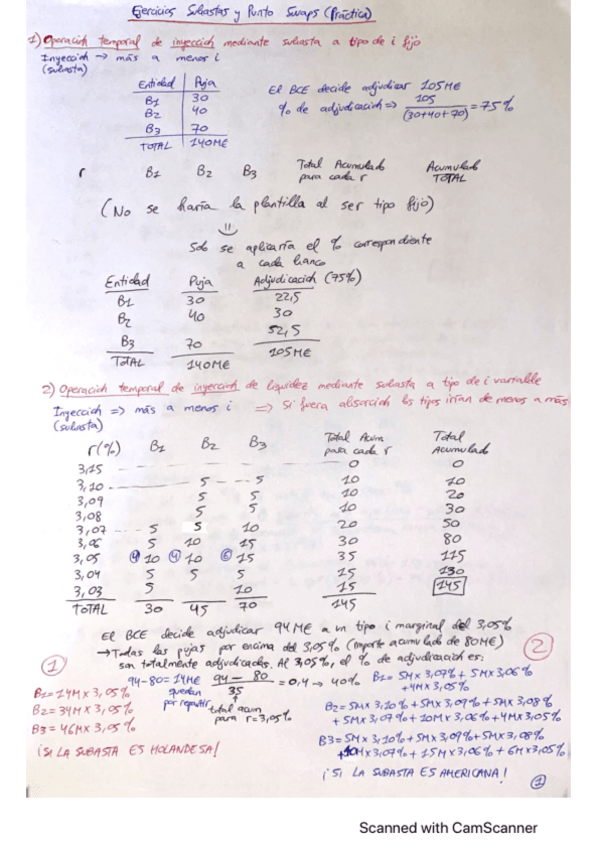 Ejercicios Subastas y Punto Swaps (Práctica)
1) Operación temporal de inyección mediante subasta a tipo de i fijo
Inyección → más a menos i
(subasta)
Entidad Puja
B1 30
B2 40
B3 70
TOTAL 140M€
El BCE decide adjudicar 105M€
% de adjudicación => 105 / (30+40+70) = 75%
r B1 B2 B3 Total Acumulado para cada r Acumulado TOTAL
(No se haría la plantilla al ser tipo fijo)
Solo se aplicaría el % correspondiente
a cada banco
Entidad Puja Adjudicación (75%)
B1 30 22,5
B2 40 30
B3 70 52,5
TOTAL 140M€ 105M€
2) Operación temporal de inyección de liquidez mediante subasta a tipo de i variable
Inyección => más a menos i => Si fuera absorción los tipos irían de menos a más
(subasta)
r(%) B1 B2 B3 Total Acum para cada r Total Acumulado
3,15 0 0
3,10 5 5 10 10
3,09 5 5 10 20
3,08 5 5 10 30
3,07 5 5 10 20 50
3,06 5 10 15 30 80
3,05 (4) 10 (4) 10 (6) 15 35 115
3,04 5 5 5 15 130
3,03 5 10 15 145
TOTAL 30 45 70 145
El BCE decide adjudicar 94M€ a un tipo i marginal del 3,05%
→ Todas las pujas por encima del 3,05% (importe acumulado de 80M€)
son totalmente adjudicadas. Al 3,05%, el % de adjudicación es:
94-80=14M€ quedan por repartir
94 - 80 / 35 = 0,4 → 40%
total acum para r=3,05%
1
B1= 14M x 3,05%
B2= 34M x 3,05%
B3= 46M x 3,05%
¡SI LA SUBASTA ES HOLANDESA!
2
B1= 5M x 3,07% + 5M x 3,06%
+4M x 3,05%
B2= 5M x 3,10% + 5M x 3,09% + 5M x 3,08%
+ 5M x 3,07% + 10M x 3,06% + 4M x 3,05%
B3= 5M x 3,10% + 5M x 3,09% + 5M x 3,08%
+10M x 3,07% + 15M x 3,06% + 6M x 3,05%
¡SI LA SUBASTA ES AMERICANA!
1
Scanned with CamScanner